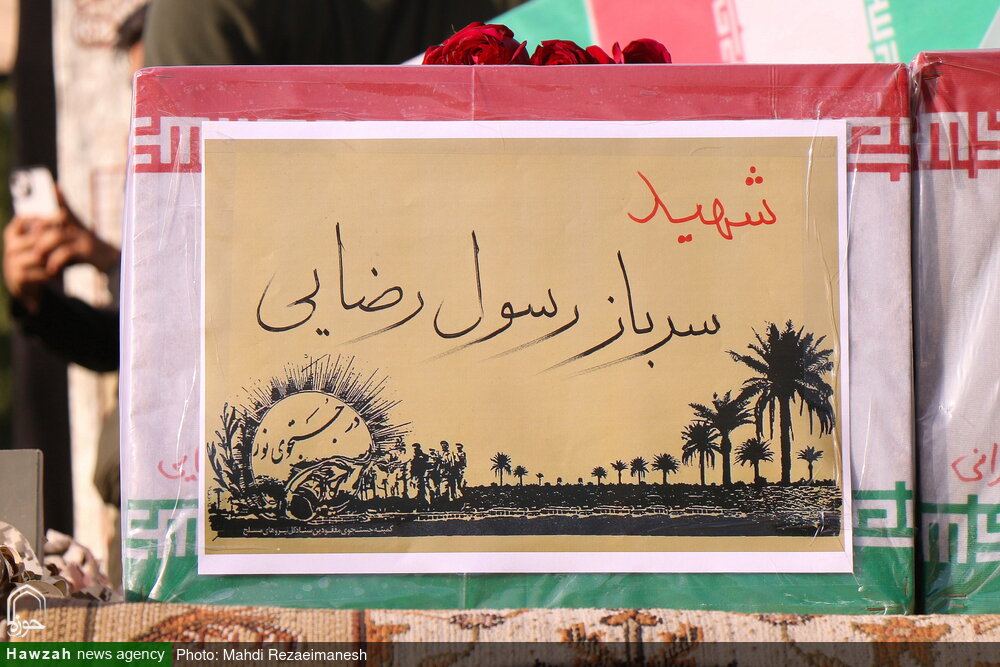 شهید
سرباز رسول رضایی
در جستجوی نور
کمیته جستجوی مفقودین ستاد کل نیروهای مسلح
حوزه
Hawzah news agency Photo: Mahdi Rezaeimanesh